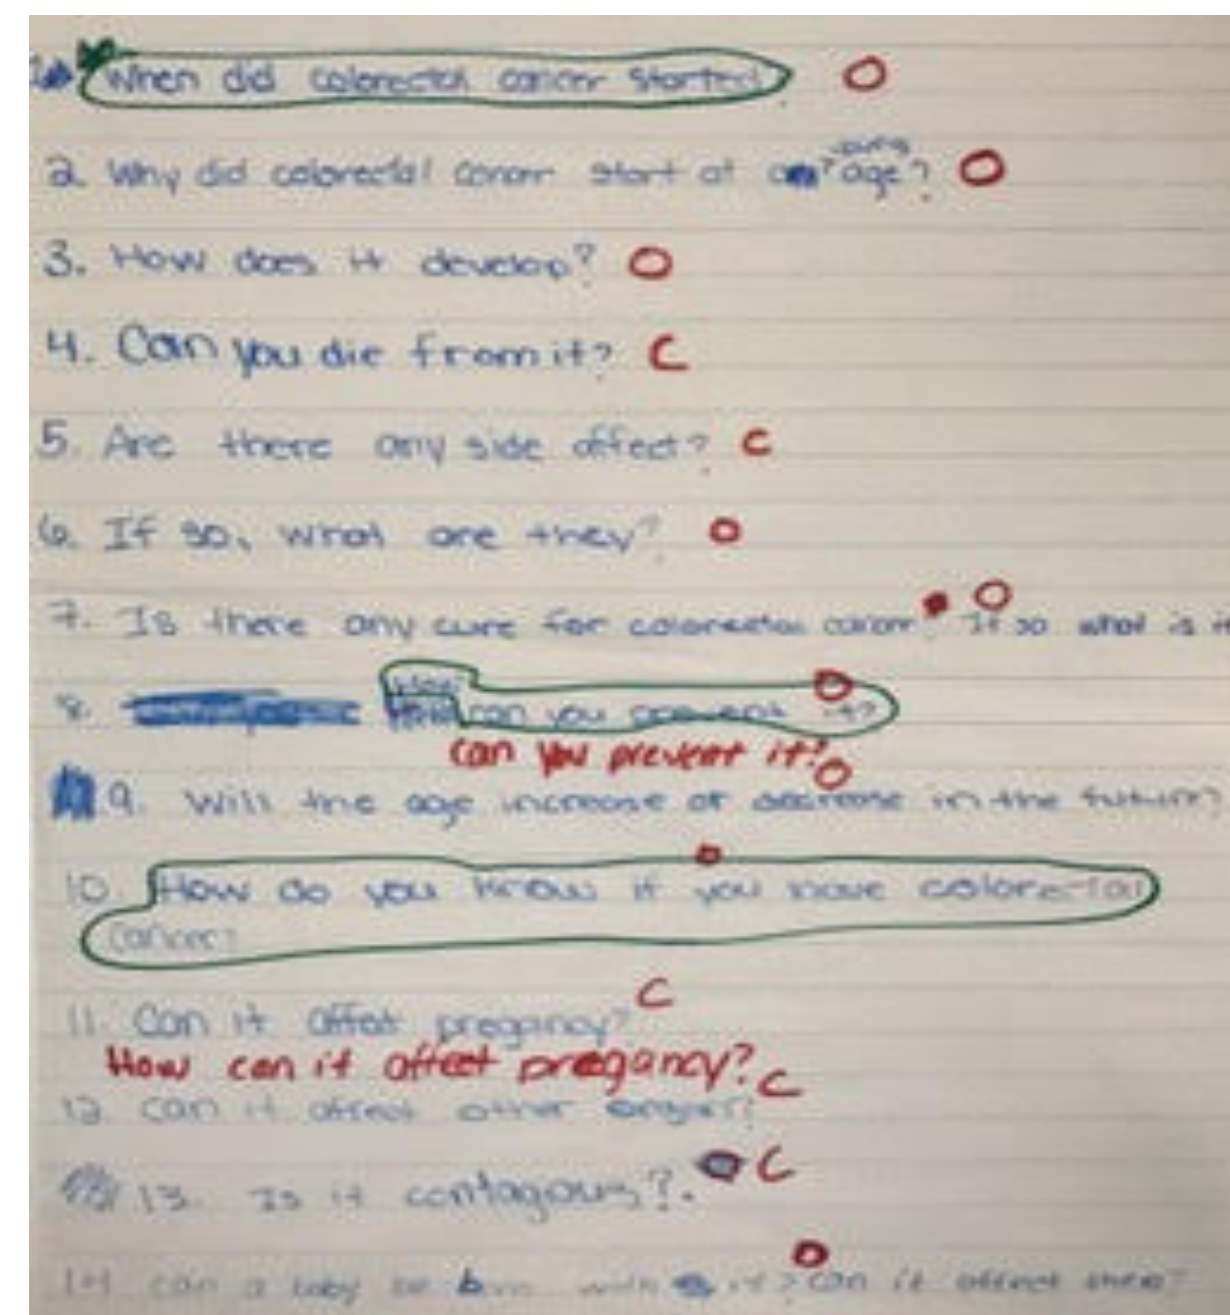 When did colorectal cancer started O
2. Why did colorectal cancer start at a young age? O
3. How does it develop? O
4. Can you die from it? C
5. Are there any side affect? C
6. If so, what are they? O
7. Is there any cure for colorectal cancer? If so what is it O
8. How can you prevent it? O
can you prevent it?
9. Will the age increase or decrease in the future? O
10. How do you know if you have colorectal O
cancer?
11. Can it affect pregancy? C
How can it affect pregancy?
12. can it affect other organs? C
13. Is it contagous?. C
14 can a baby be born with it? can it affect them? O